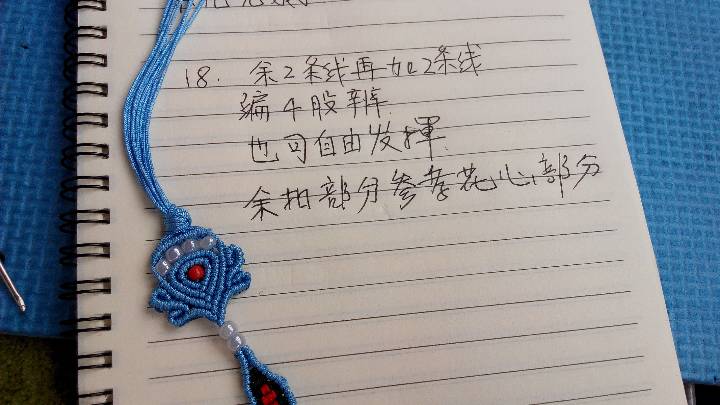 18. 余2条线再加2条线
编4股辫.
也可自由发揮.
余扣部分参考花心部分